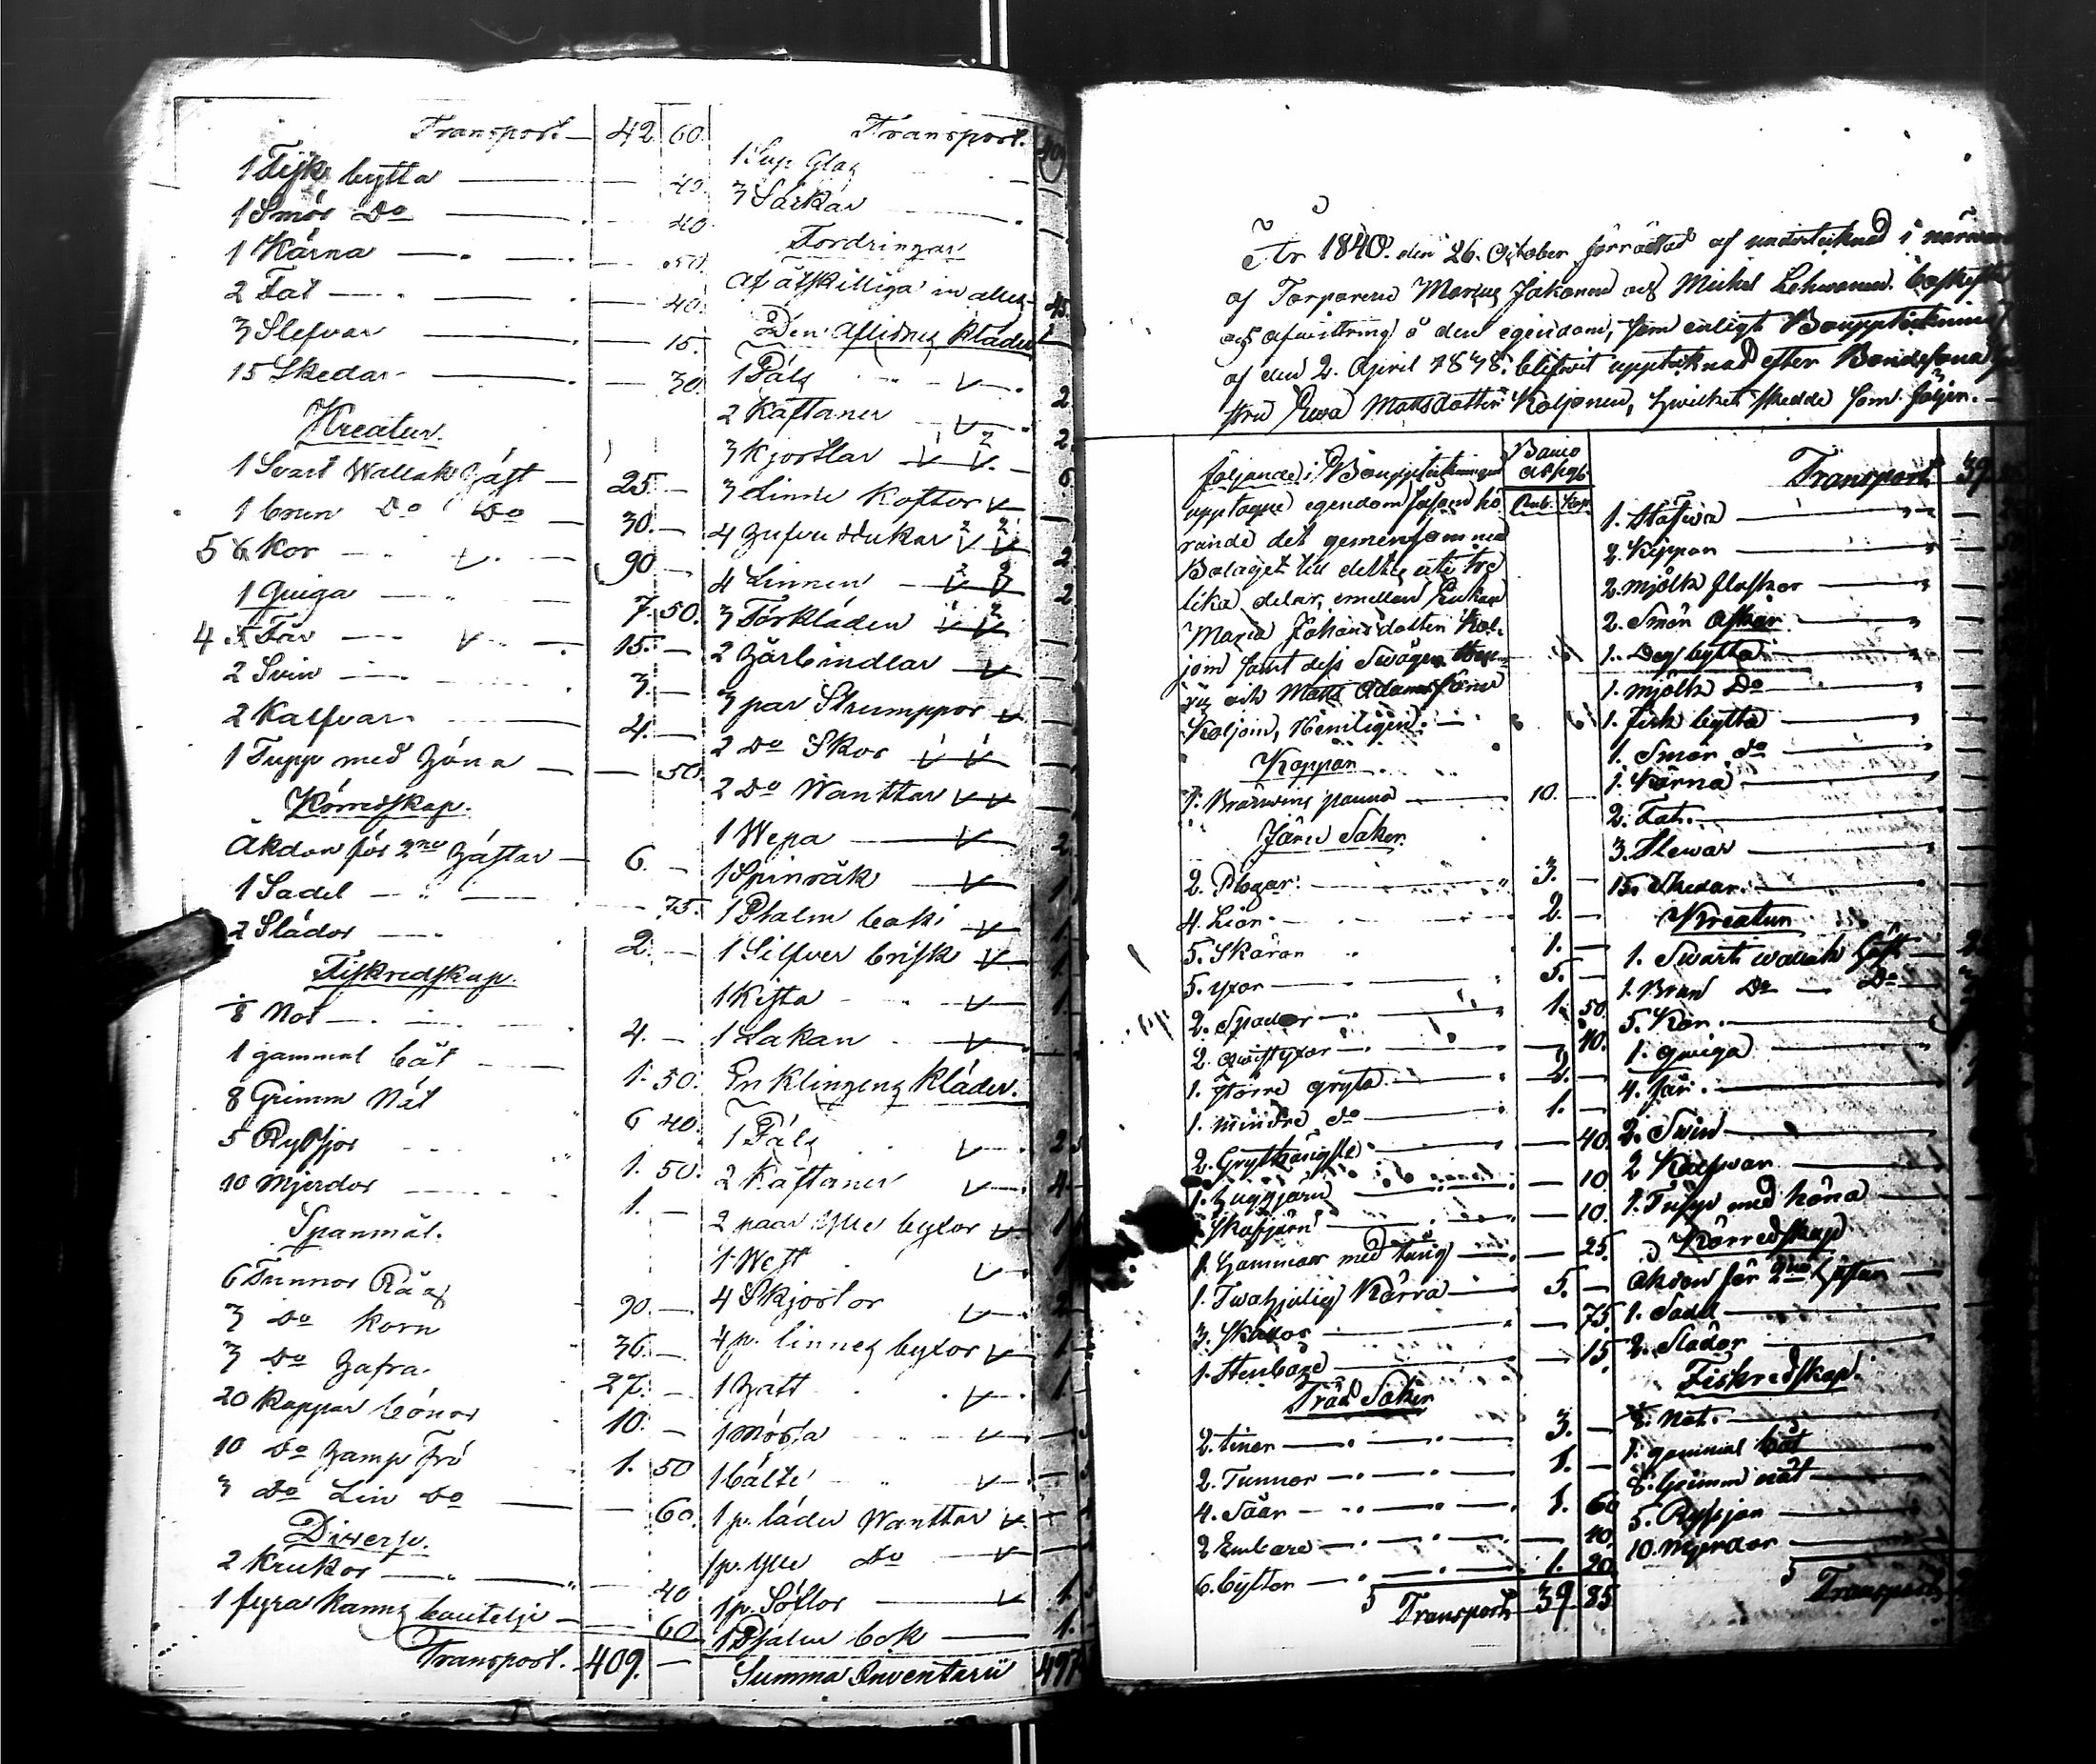 Transport 42 60.
1 Fisk bytta 40.
1 Smör Do 40
1 Kärna 50.
2 Fat 40.
3 Slefvar 15.
15 Skedar 30
Kreatur.
1 Svart Wallak Häst 25.
1 brun Do Do 30.
5 6 Kor 90
1 Quiga 7. 50.
4. 5 Får 15.
2 Svin 3.
2 Kalfvar 4.
1 Tupp med Höna 50.
Körredskap.
Åkdon för 2ne Hästar 6.
1 Sadel 75.
2 Slädor 2.
Fiskredskap.
1/8 Not 4.
1 gammal båt 1. 50.
8 Grimm Nät 6 40.
5 Ryssjor 1. 50.
10 Mjerdor 1.
Spanmål.
6 Tunnor Råg 90.
3 Do Korn 36.
3 Do Hafra. 27.
20 Kappar bönor 10.
10 Do Hamp Frö 1. 50
3 Do Lin Do 60.
Diverse.
2 Krukor 40
1 fyra Kanns boutelje 60
Transport. 409.
Transport.
1 Sup Glas
3 Särkar
Fordringar
Af åtskilliga in alles 45.
Den Aflidnes Kläder
1 Päls
2 Kaftaner 2
3 Kjortlar 2
3 Linne Koftor 6
4 Hufvuddukar
4 Linnen 2
3 Förkläden 2
2 Hårbindlar
3 par Strumppor
2 Do Skor
2 Do Wanttar
1 Wepa
1 Spinråk 2
1 Psalm bok 1
1 Silfver brisk 1
1 Kista 1
1 Lakan 1
Enklingens Kläder.
1 Päls
2 Kaftaner 2
2 paar Ylle byxor 4
1 West 1
4 Skjortor
4 p. linnes byxor 2
1 Hatt 1
1 Mössa 1
1 bälte
1 p. läder Wanttar
1 p. ylle Do
1 p. Söflor 1
1 Psalm bok 1.
Summa Inventarii 497
År 1840. den 26. October förrättad af undertecknad i närwaro
af Torparena Marius Jakonen och Mickel Lehwonen boskifte
och afwittring å den egendom, som enligt Boupptekning
af den 2. April 1838. blifwit upptecknad efter Bondesonahu
stru Ewa Mattsdotter Koljonen, hwilket skedde som följer.
följande i Boupptekningen
upptagne egendom såsom hö
rande det gemensamma
Bolaget till delttes uti tre
lika delar, emellan Enkan
Maria Johansdotter Kol-
join samt dess Swågrar Hen-
rik och Matts Adams söner
Koljoin, Nemligen:
Banco assign.
Rub. Kop.
Koppar
1. Bränwins panna 10.
Järn Saker
2. Plogar. 3.
4. Liar 2.
5. Skäror 1.
5. yxor 5.
2. Spador 1. 50.
2. Qwistyxor 40.
1. större gryta 2.
1. mindre do 1.
2. Grythängsle 40
1. Huggjärn 10
Skafjärn 10.
1. Hammar med tång 25.
1. Twåhjulig Kärra 5.
3. Skäror 75
1. Stenborr 15.
Träd Saker
2. tiner 3.
2. Tunnor 1.
4. Såar 1. 60
2 Embare 40
6. byttor 1. 20
Transport 39 85
Transport 39
1. Stäfwa
2. Kippor
2. mjölk flaskor
2. Smör Askar
1. Deg bytta
1. mjölk Do
1. fisk bytta
1. Smör do
1. Kärna
2. Fat.
3. Slewar
15. Skedar
Kreatur
1. Swart walak Häst
1. Brun Do Do
5. Kor
1. qwiga
4. får
2. Swin
2 Kalfwar
1. Tupp med höna
Körredskap
Åkdon för 2ne Hästar
1. Sadel
2. Slädor
Fiskredskap.
1/8. Not.
1. gammal båt
8. Grimm nät
5. Ryssjor
10. Mjerdor
Transport